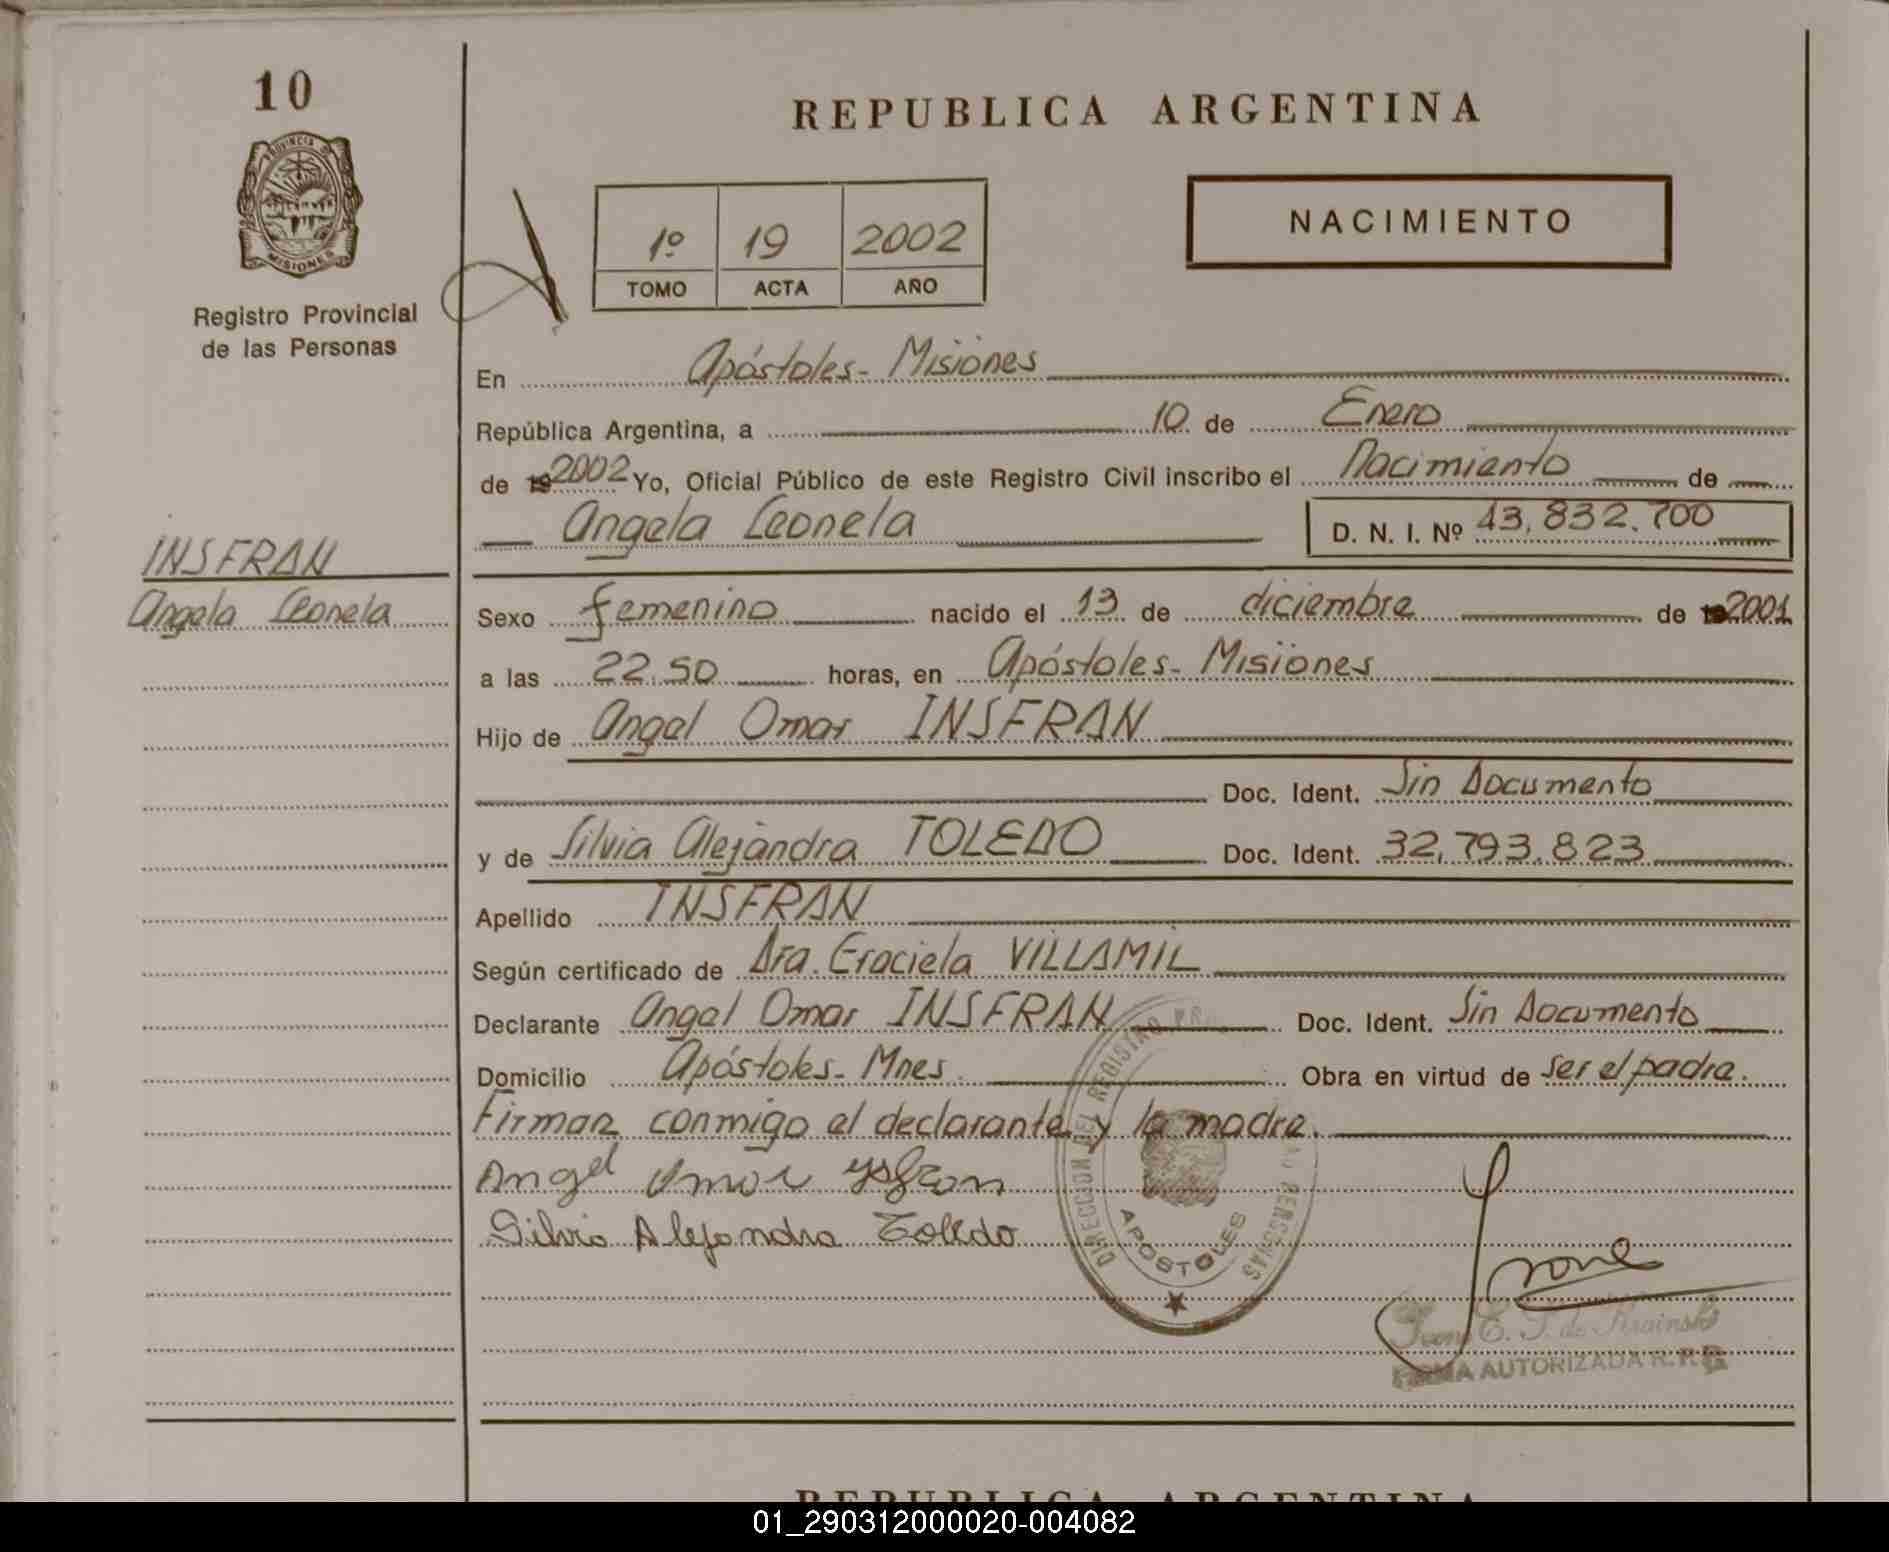 10
REPUBLICA ARGENTINA
PROVINCIA DE
MISIONES
Registro Provincial
de las Personas
NACIMIENTO
1º 19 2002
TOMO ACTA AÑO
En Apóstoles- Misiones
República Argentina, a 10 de Enero
de 19 2002 Yo, Oficial Público de este Registro Civil inscribo el Nacimiento de
Angela Leonela D. N. I. Nº 43,832.700
INSFRAN
Angela Leonela
Sexo femenino nacido el 13 de diciembre de 19 2001
a las 22.50 horas, en Apóstoles- Misiones
Hijo de Angel Omar INSFRAN
Doc. Ident. Sin Documento
y de Silvia Alejandra TOLEDO Doc. Ident. 32,793.823
Apellido INSFRAN
Según certificado de Dra. Graciela VILLAMIL
Declarante Angel Omar INSFRAN Doc. Ident. Sin Documento
Domicilio Apóstoles- Mnes. Obra en virtud de ser el padre.
Firman conmigo el declarante y la madre.
Angel Omar ysfran
Silvia Alejandra Toledo
DIRECCION DEL REGISTRO PR PERSONAS
APOSTOLES
E. de
FIRMA AUTORIZADA R.P.P.
REPUBLICA ARGENTINA
01_290312000020-004082